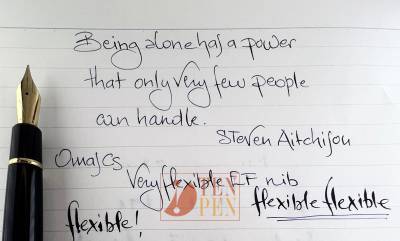 Being alone has a power
that only very few people
can handle.
Steven Aitchison
Omas CS
Very flexible EF nib
flexible flexible
flexible!
PEN
PEN